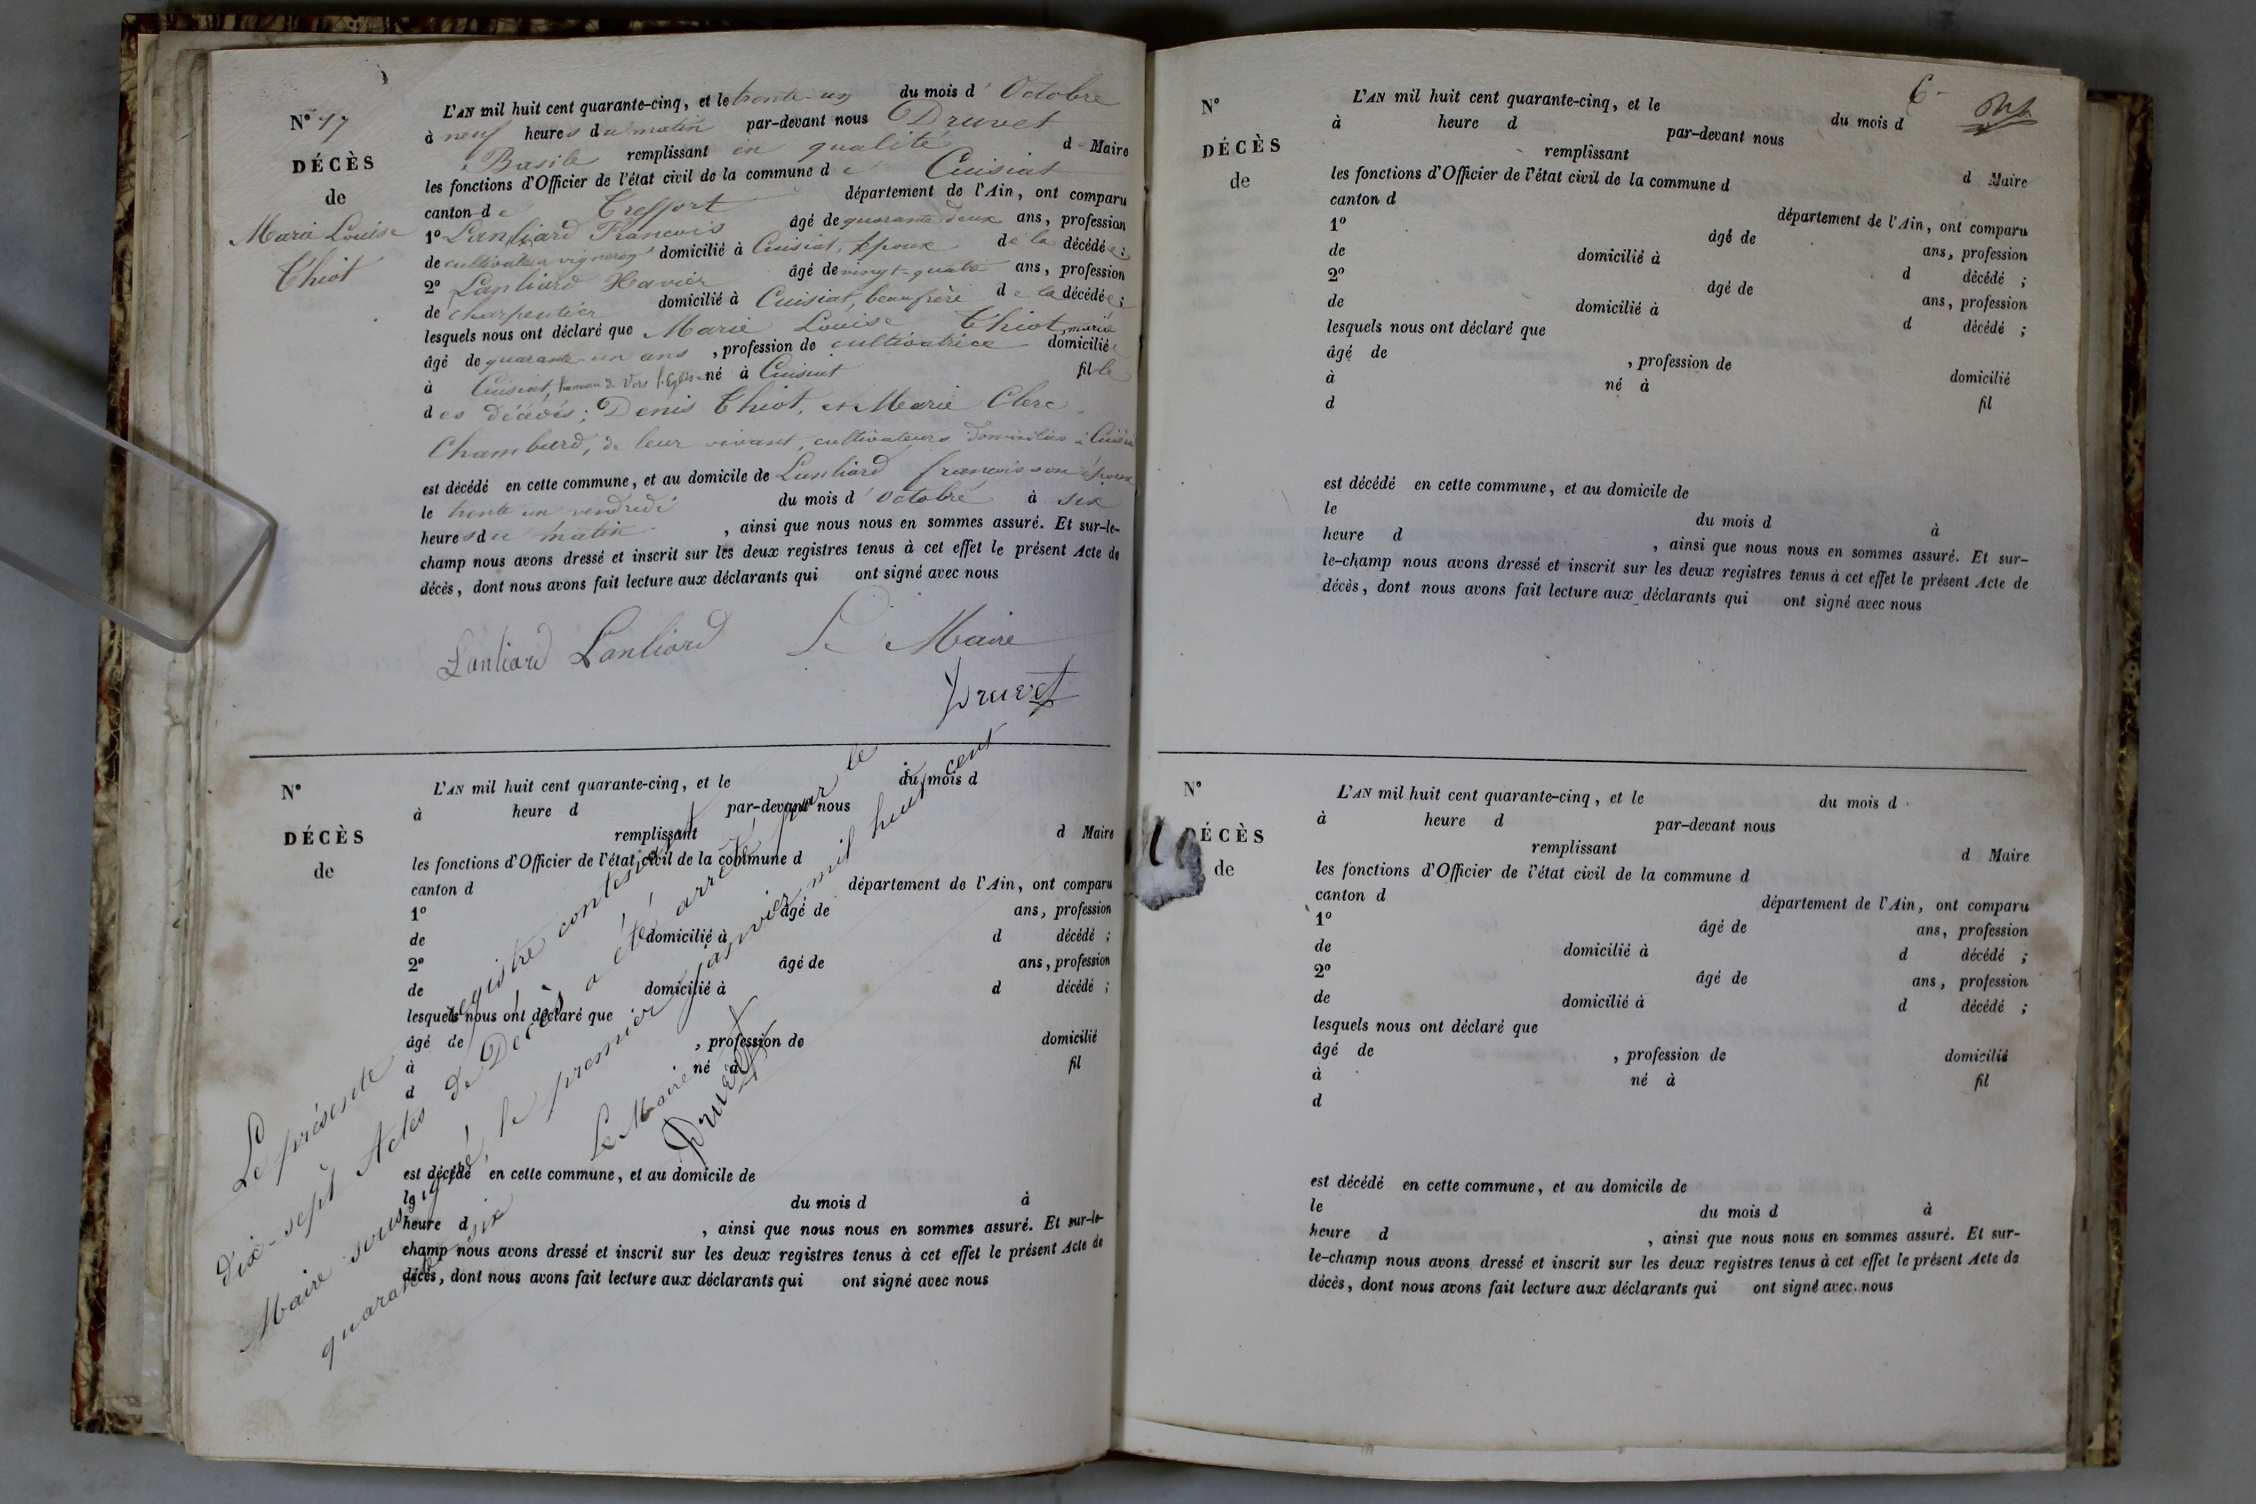 N° 17
DÉCÈS
de
Marie Louise
Thiot
L'AN mil huit cent quarante-cinq, et le trente-un du mois d'Octobre
à neuf heures du matin par-devant nous Druvet
Basile remplissant en qualité d Maire
les fonctions d'Officier de l'état civil de la commune de Cuisiat
canton de Treffort département de l'Ain, ont comparu
1° Lanliard François âgé de quarante deux ans, profession
de cultivateur vigneron domicilié à Cuisiat, époux de la décédée;
2° Lanliard Xavier âgé de vingt-quatre ans, profession
de charpentier domicilié à Cuisiat, beaufrère de la décédée;
lesquels nous ont déclaré que Marie Louise Thiot, mariée
âgé de quarante-un ans, profession de cultivatrice domiciliée
à Cuisiat, hameau de Vers l'Eglise né à Cuisiat fille
des décédés: Denis Thiot, et Marie Clerc
Chambard, de leur vivant, cultivateurs domiciliés à Cuisiat
est décédé en cette commune, et au domicile de Lanliard françois son époux
le trente un vendredi du mois d'octobre à six
heures du matin, ainsi que nous nous en sommes assuré. Et sur-le-
champ nous avons dressé et inscrit sur les deux registres tenus à cet effet le présent Acte de
décès, dont nous avons fait lecture aux déclarants qui ont signé avec nous
Lanliard Lanliard Le Maire
Druvet
N°
DÉCÈS
de
L'AN mil huit cent quarante-cinq, et le du mois d
à heure d par-devant nous
remplissant d Maire
les fonctions d'Officier de l'état civil de la commune d
canton d département de l'Ain, ont comparu
1° âgé de ans, profession
de domicilié à d décédé ;
2° âgé de ans, profession
de domicilié à d décédé ;
lesquels nous ont déclaré que
âgé de , profession de domicilié
à né à fil
d
est décédé en cette commune, et au domicile de
le du mois d à
heure d , ainsi que nous nous en sommes assuré. Et sur-le-
champ nous avons dressé et inscrit sur les deux registres tenus à cet effet le présent Acte de
décès, dont nous avons fait lecture aux déclarants qui ont signé avec nous
Le présente registre contenant
dix-sept Actes de Décès a été arrêté, par le
Maire soussigné, le premier janvier mil huit cent
quarante-six
Le Maire
Druvet
6
N°
DÉCÈS
de
L'AN mil huit cent quarante-cinq, et le du mois d
à heure d par-devant nous
remplissant d Maire
les fonctions d'Officier de l'état civil de la commune d
canton d département de l'Ain, ont comparu
1° âgé de ans, profession
de domicilié à d décédé ;
2° âgé de ans, profession
de domicilié à d décédé ;
lesquels nous ont déclaré que
âgé de , profession de domicilié
à né à fil
d
est décédé en cette commune, et au domicile de
le du mois d à
heure d , ainsi que nous nous en sommes assuré. Et sur-
le-champ nous avons dressé et inscrit sur les deux registres tenus à cet effet le présent Acte de
décès, dont nous avons fait lecture aux déclarants qui ont signé avec nous
N°
DÉCÈS
de
L'AN mil huit cent quarante-cinq, et le du mois d
à heure d par-devant nous
remplissant d Maire
les fonctions d'Officier de l'état civil de la commune d
canton d département de l'Ain, ont comparu
1° âgé de ans, profession
de domicilié à d décédé ;
2° âgé de ans, profession
de domicilié à d décédé ;
lesquels nous ont déclaré que
âgé de , profession de domicilié
à né à fil
d
est décédé en cette commune, et au domicile de
le du mois d à
heure d , ainsi que nous nous en sommes assuré. Et sur-
le-champ nous avons dressé et inscrit sur les deux registres tenus à cet effet le présent Acte de
décès, dont nous avons fait lecture aux déclarants qui ont signé avec nous